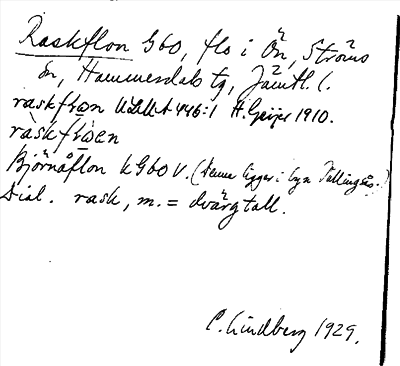 Raskflon G60, flo i Ön, Ströms
sn, Hammerdals tg, Jämtl. l.
raskflon ULMA 446:1 H. Geijer 1910.
raskflöen
Björnåflon kG60 V. (Denna ligger i byn Tullingsås.)
Dial. rask, m. = dvärgtall.
C. Lindberg 1929.